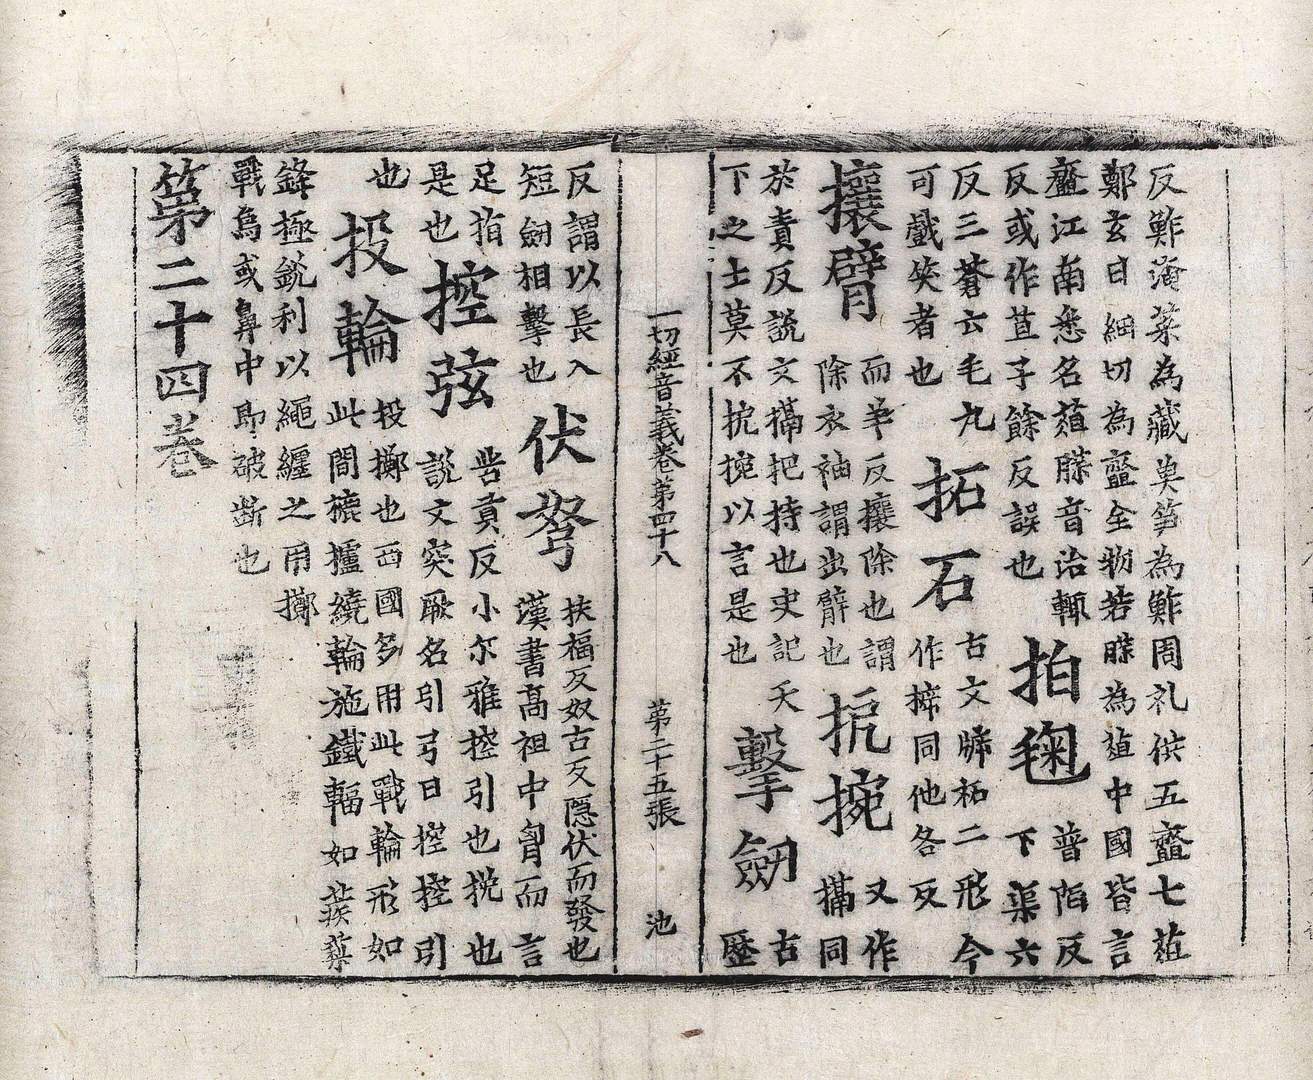 反鮓滷菜為藏奥笋為鮓周礼供五齏七葅
鄭玄曰細切為齏全物若䐑為葅中國皆言
齏江南悉名葅䐑音治輒
反或作苴子餘反誤也
拍毱
普陌反
下渠六
反三蒼云毛丸
可戲笑者也
拓石
古文柘二形今
作同他各反
攘臂
而羊反攘除也謂
除衣袖謂出臂也
扼捥
又作
㩴同
於責反説文㩴把持也史記天
下之士莫不扼捥以言是也
擊劒
古
歷
一切經音義卷第四十八 第二十五張 池
反謂以長入
短劒相擊也
伏弩
扶福反奴古反隱伏而發也
漢書髙祖中胷而言
足指
是也
控弦
苦貢反小尔雅控引也挽也
說文突厥名引弓曰控控引
也
投輪
投擲也西國多用此戰輪形如
此間轆轤繞輪施鐵輻如蒺䔧
鋒極銳利以繩纏之用擲
戰烏或鼻中即破斷也
第二十四卷